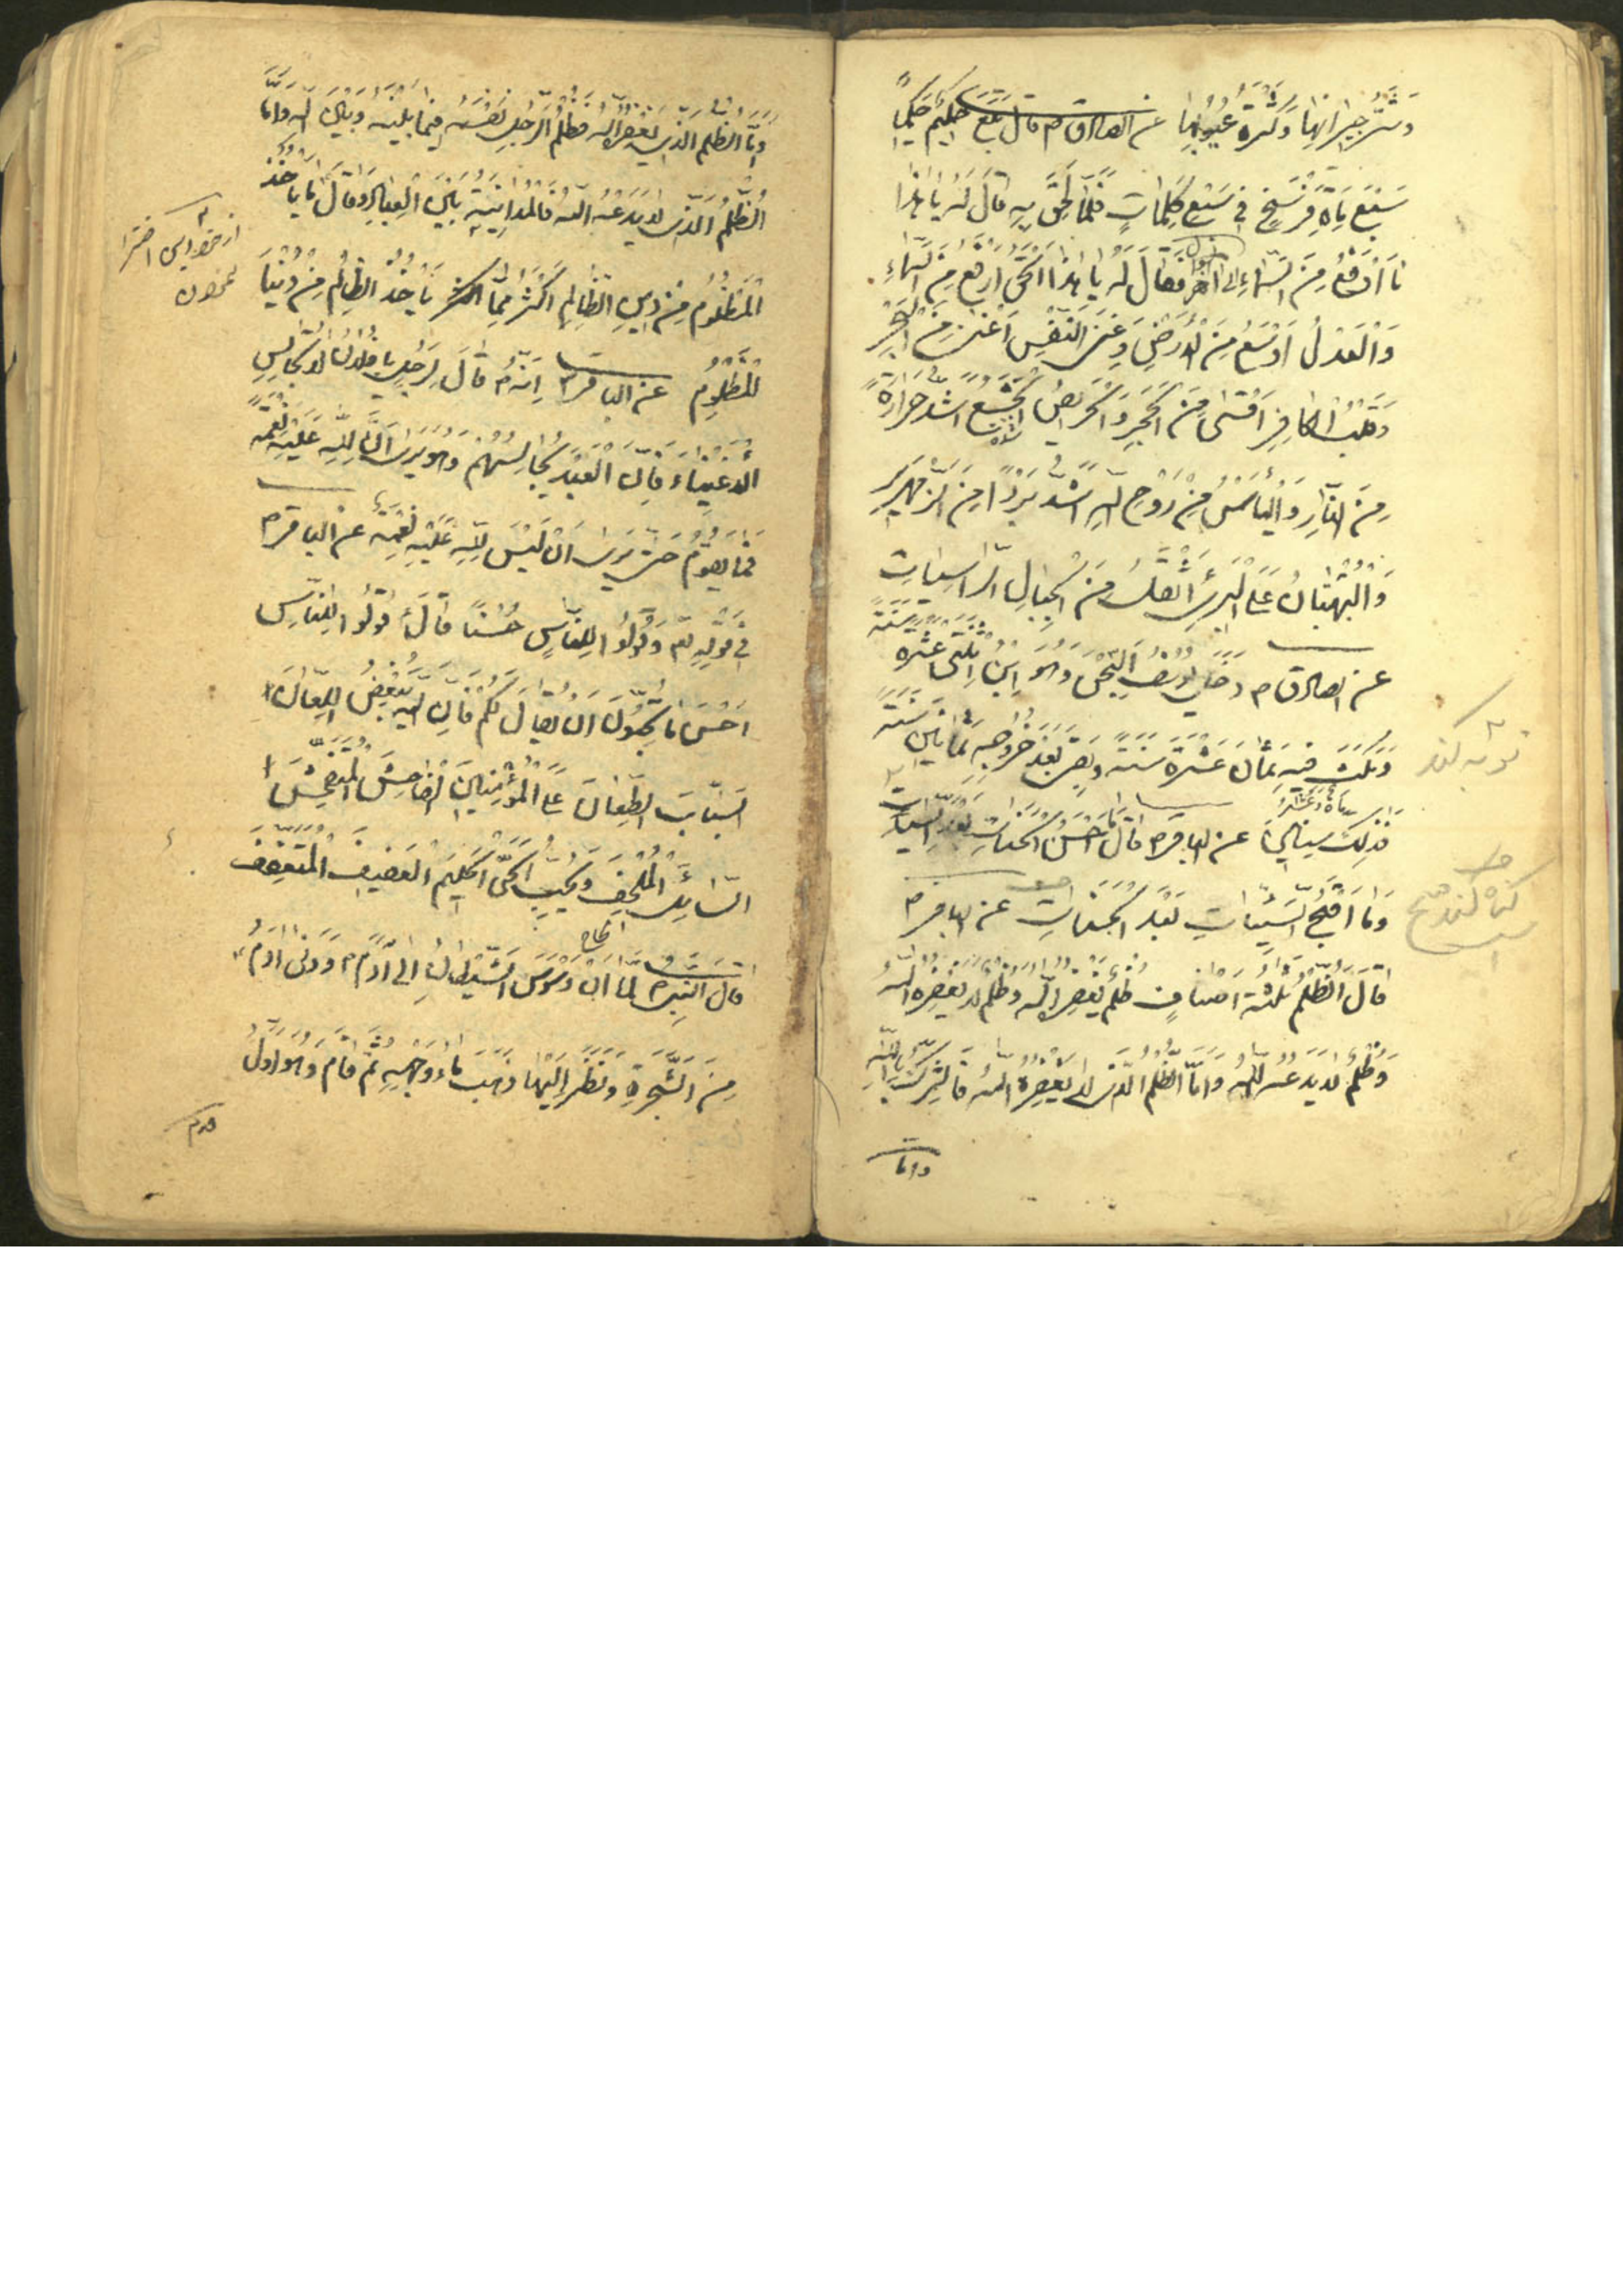 وَشَرُّ جِيرَانِهَا وَكَثْرَةُ عُيُوبِهَا عن الصادق م قال تَبِعَ حَكِيمٌ حَكِيماً
سَبْعَ مِاةِ فَرْسَخٍ فِي سَبْعِ كَلِمَاتٍ فَلَمَّا لَحِقَ بِهِ قَالَ لَهُ يَا هٰذَا
مَا أَرْفَعُ مِنَ السَّمَاءِ الى آخر فَقَالَ لَهُ يَا هٰذَا اَلْحَقُّ اَرْفَعُ مِنَ السَّمَاءِ
وَالْعَدْلُ اَوْسَعُ مِنَ الْاَرْضِ وَغِنَى النَّفْسِ اَغْنَى مِنَ الْبَحْرِ
وَقَلْبُ الْكَافِرِ اَقْسَى مِنَ الْحَجَرِ وَالْحَرِيصُ الْجَشِعُ اَشَدُّ حَرَارَةً
مِنَ النَّارِ وَالْيَاْسُ مِنْ رَوْحِ اللهِ اَشَدُّ بَرْداً مِنَ الزَّمْهَرِيرِ
وَالْبُهْتَانُ عَلَى الْبَرِئِ اَثْقَلُ مِنَ الْجِبَالِ الرَّاسِيَاتِ
عن الصادق م دَخَلَ يُوسُفُ السِّجْنَ وَهُوَ ابْنُ اثْنَتَيْ عَشْرَةَ سَنَةً
وَمَكَثَ فِيهِ ثَمَانَ عَشْرَةَ سَنَةً وَبَقِيَ بَعْدَ خُرُوجِهِ ثَمَانِينَ سَنَةً
فَذٰلِكَ مِاةٌ وَعَشْرُ سِنِينَ عن الباقر م قال مَا اَحْسَنَ الْحَسَنَاتِ بَعْدَ السَّيِّئَاتِ
وَمَا اَقْبَحَ السَّيِّئَاتِ بَعْدَ الْحَسَنَاتِ عن الباقر م
قَالَ الظُّلْمُ ثَلٰثَةُ اَصْنَافٍ ظُلْمٌ يَغْفِرُهُ اللهُ وَظُلْمٌ لَا يَغْفِرُهُ اللهُ
وَظُلْمٌ لَا يَدَعُهُ اللهُ وَاَمَّا الظُّلْمُ الَّذِى لَا يَغْفِرُهُ اللهُ فَالشِّرْكُ بِاللهِ
واما
توبه کند
گناه کند
وَاَمَّا الظُّلْمُ الَّذِى يَغْفِرُهُ اللهُ فَظُلْمُ الرَّجُلِ نَفْسَهُ فِيمَا بَيْنَهُ وَبَيْنَ اللهِ وَاَمَّا
الظُّلْمُ الَّذِى لَا يَدَعُهُ اللهُ فَالْمُدَايَنَةُ بَيْنَ الْعِبَادِ وَقَالَ مَا يَاْخُذُ
الْمَظْلُومُ مِنْ دِينِ الظَّالِمِ اَكْثَرُ مِمَّا يَاْخُذُ الظَّالِمُ مِنْ دُنْيَا
الْمَظْلُومِ عن الباقر م اِنَّهُ قَالَ لِرَجُلٍ يَا فُلَانُ لَا تُجَالِسِ
الْاَغْنِيَاءَ فَاِنَّ الْعَبْدَ يُجَالِسُهُمْ وَهُوَ يَرَى اَنَّ لِلّهِ عَلَيْهِ نِعْمَةً
فَمَا يَقُومُ حَتَّى يَرَى اَنْ لَيْسَ لِلّهِ عَلَيْهِ نِعْمَةٌ عن الباقر م
فِي قَوْلِهِ تع وَقُولُوا لِلنَّاسِ حُسْناً قَالَ قُولُوا لِلنَّاسِ
اَحْسَنَ مَا تُحِبُّونَ اَنْ يُقَالَ لَكُمْ فَاِنَّ اللهَ يُبْغِضُ اللَّعَّانَ
السَّبَّابَ الطَّعَّانَ عَلَى الْمُؤْمِنِينَ الْفَاحِشَ الْمُتَفَحِّشَ
السَّائِلَ الْمُلْحِفَ وَيُحِبُّ الْحَيَّ الْحَلِيمَ الْعَفِيفَ الْمُتَعَفِّفَ
قال النبي م لَمَّا اَنْ وَسْوَسَ الشَّيْطَانُ اِلَى آدَمَ م وَدَنَى آدَمُ
مِنَ الشَّجَرَةِ وَنَظَرَ اِلَيْهَا ذَهَبَ مَاءُ وَجْهِهِ ثُمَّ قَامَ وَهُوَ اَوَّلُ
قدم